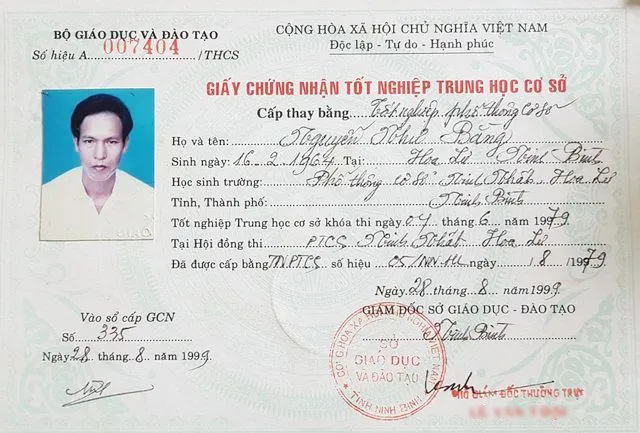 BỘ GIÁO DỤC VÀ ĐÀO TẠO
Số hiệu A 007404 /THCS
CỘNG HÒA XÃ HỘI CHỦ NGHĨA VIỆT NAM
Độc lập - Tự do - Hạnh phúc
GIẤY CHỨNG NHẬN TỐT NGHIỆP TRUNG HỌC CƠ SỞ
Cấp thay bằng Tốt nghiệp phổ thông cơ sở
Họ và tên: Nguyễn Như Băng
Sinh ngày: 16-2-1964 Tại: Hoa Lư Ninh Bình
Học sinh trường: Phổ thông cơ sở Ninh Nhất, Hoa Lư
Tỉnh, Thành phố: Ninh Bình
Tốt nghiệp Trung học cơ sở khóa thi ngày 04 tháng 6 năm 1979
Tại Hội đồng thi PTCS Ninh Nhất Hoa Lư
Đã được cấp bằng TNPTCS số hiệu 05/NN-HL ngày /8/1979
Ngày 28 tháng 8 năm 1999
GIÁM ĐỐC SỞ GIÁO DỤC - ĐÀO TẠO
Ninh Bình
Vào sổ cấp GCN
Số 335
Ngày 28 tháng 8 năm 1999
CỘNG HÒA XÃ HỘI CHỦ NGHĨA VIỆT NAM
SỞ
GIÁO DỤC
VÀ ĐÀO TẠO
TỈNH NINH BÌNH
PHÓ GIÁM ĐỐC THƯỜNG TRỰC